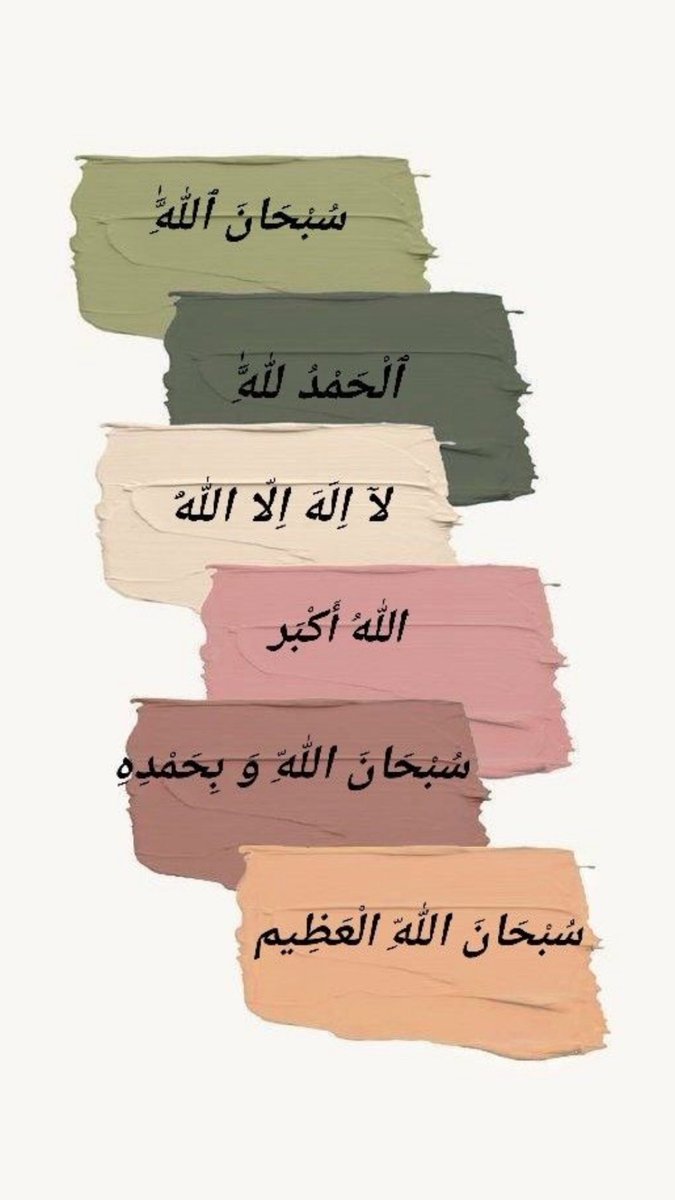 سُبْحَانَ ٱللّٰهِ
ٱلْحَمْدُ لِلّٰهِ
لآ اِلَهَ اِلّا اللّٰهُ
اللّٰهُ أَكْبَر
سُبْحَانَ اللّٰهِ وَ بِحَمْدِهِ
سُبْحَانَ اللّٰهِ الْعَظِيم